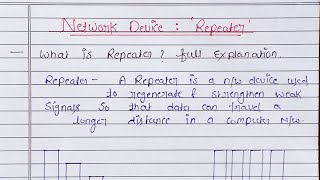 Network Device : 'Repeater'
— What is Repeater? full Explanation.
Repeater - A Repeater is a n/w device used
to regenerate & strengthen weak
Signals so that data can travel a
longer distance in a computer n/w.